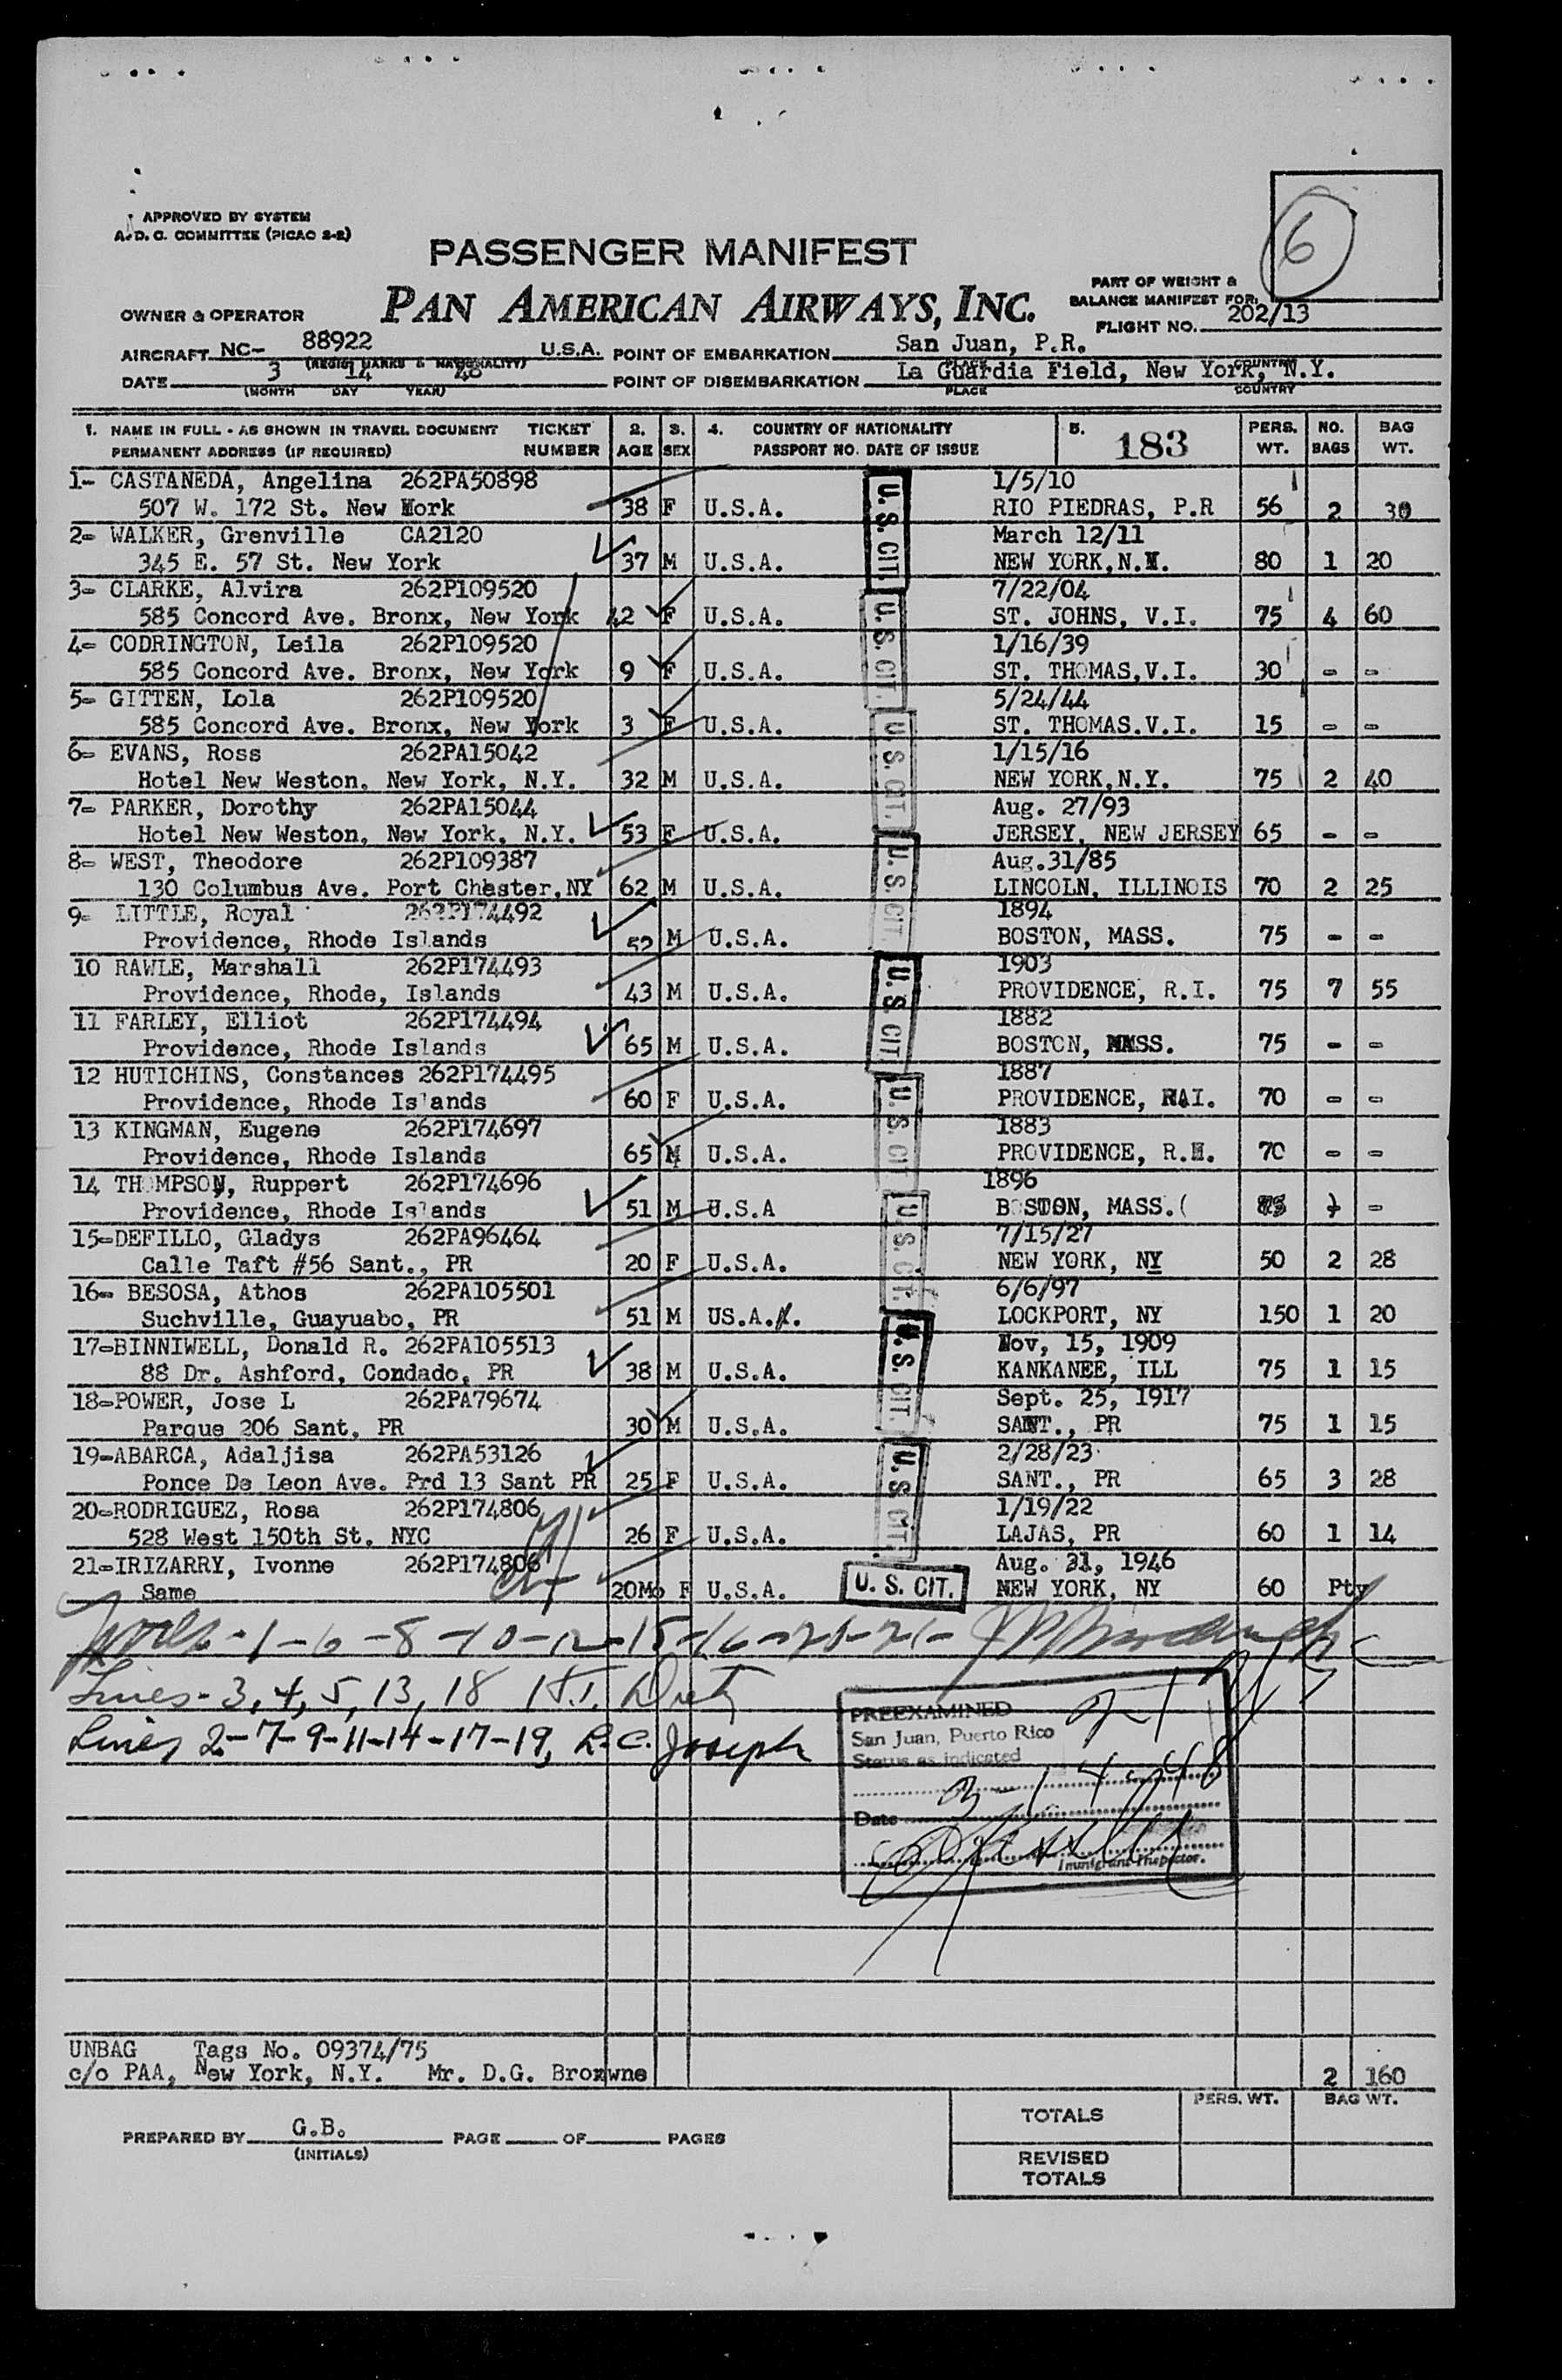 APPROVED BY SYSTEM
A. D. C. COMMITTEE (PICAO 2-2)
6
PASSENGER MANIFEST
PAN AMERICAN AIRWAYS, INC.
PART OF WEIGHT &
BALANCE MANIFEST FOR
FLIGHT NO. 202/13
OWNER & OPERATOR
AIRCRAFT NC- 88922 U.S.A. POINT OF EMBARKATION San Juan, P.R.
(REGIS. MARKS & NATIONALITY) PLACE COUNTRY
DATE 3 14 48 POINT OF DISEMBARKATION La Guardia Field, New York, N.Y.
(MONTH DAY YEAR) PLACE COUNTRY
1. NAME IN FULL - AS SHOWN IN TRAVEL DOCUMENT TICKET 2. 3. 4. COUNTRY OF NATIONALITY 5. 183 PERS. NO. BAG
PERMANENT ADDRESS (IF REQUIRED) NUMBER AGE SEX PASSPORT NO. DATE OF ISSUE WT. BAGS WT.
1- CASTANEDA, Angelina 262PA50898 1/5/10
507 W. 172 St. New York 38 F U.S.A. U.S. CIT. RIO PIEDRAS, P.R 56 2 30
2- WALKER, Grenville CA2120 March 12/11
345 E. 57 St. New York 37 M U.S.A. NEW YORK,N.Y. 80 1 20
3- CLARKE, Alvira 262P109520 7/22/04
585 Concord Ave. Bronx, New York 42 F U.S.A. U.S. CIT. ST. JOHNS, V.I. 75 4 60
4- CODRINGTON, Leila 262P109520 1/16/39
585 Concord Ave. Bronx, New York 9 F U.S.A. ST. THOMAS,V.I. 30 - -
5- GITTEN, Lola 262P109520 5/24/44
585 Concord Ave. Bronx, New York 3 F U.S.A. U.S. CIT. ST. THOMAS.V.I. 15 - -
6- EVANS, Ross 262PA15042 1/15/16
Hotel New Weston, New York, N.Y. 32 M U.S.A. NEW YORK,N.Y. 75 2 40
7- PARKER, Dorothy 262PA15044 Aug. 27/93
Hotel New Weston, New York, N.Y. 53 F U.S.A. U.S. CIT. JERSEY, NEW JERSEY 65 - -
8- WEST, Theodore 262P109387 Aug.31/85
130 Columbus Ave. Port Chester,NY 62 M U.S.A. LINCOLN, ILLINOIS 70 2 25
9- LITTLE, Royal 262P174492 1894
Providence, Rhode Islands 52 M U.S.A. BOSTON, MASS. 75 - -
10 RAWLE, Marshall 262P174493 1903
Providence, Rhode, Islands 43 M U.S.A. U.S. CIT PROVIDENCE, R.I. 75 7 55
11 FARLEY, Elliot 262P174494 1882
Providence, Rhode Islands 65 M U.S.A. BOSTON, MASS. 75 - -
12 HUTICHINS, Constances 262P174495 1887
Providence, Rhode Islands 60 F U.S.A. U.S. CIT PROVIDENCE, R.I. 70 - -
13 KINGMAN, Eugene 262P174697 1883
Providence, Rhode Islands 65 M U.S.A. PROVIDENCE, R.I. 70 - -
14 THOMPSON, Ruppert 262P174696 1896
Providence, Rhode Islands 51 M U.S.A U.S. CIT. BOSTON, MASS.( -
15-DEFILLO, Gladys 262PA96464 7/15/27
Calle Taft #56 Sant., PR 20 F U.S.A. NEW YORK, NY 50 2 28
16- BESOSA, Athos 262PA105501 6/6/97
Suchville, Guayuabo, PR 51 M US.A. U.S. CIT. LOCKPORT, NY 150 1 20
17-BINNIWELL, Donald R. 262PA105513 Nov, 15, 1909
88 Dr. Ashford, Condado, PR 38 M U.S.A. KANKANEE, ILL 75 1 15
18-POWER, Jose L 262PA79674 Sept. 25, 1917
Parque 206 Sant, PR 30 M U.S.A. SANT., PR 75 1 15
19-ABARCA, Adaljisa 262PA53126 2/28/23
Ponce De Leon Ave. Prd 13 Sant PR 25 F U.S.A. U.S. CIT. SANT., PR 65 3 28
20-RODRIGUEZ, Rosa 262P174806 1/19/22
528 West 150th St. NYC 26 F U.S.A. LAJAS, PR 60 1 14
21-IRIZARRY, Ivonne 262P174806 Aug. 31, 1946
Same 20Mo F U.S.A. U. S. CIT. NEW YORK, NY 60 Pty
1-6-8-10-12-15-16-20-21-
Lines- 3, 4, 5, 13, 18
Lines 2-7-9-11-14-17-19, R.C. Joseph
PREEXAMINED
San Juan, Puerto Rico
Status as indicated
Date 3-14-48
Immigrant Inspector.
UNBAG Tags No. 09374/75
c/o PAA, New York, N.Y. Mr. D.G. Bronwne 2 160
TOTALS PERS. WT. BAG WT.
PREPARED BY G.B. PAGE OF PAGES
(INITIALS)
REVISED
TOTALS